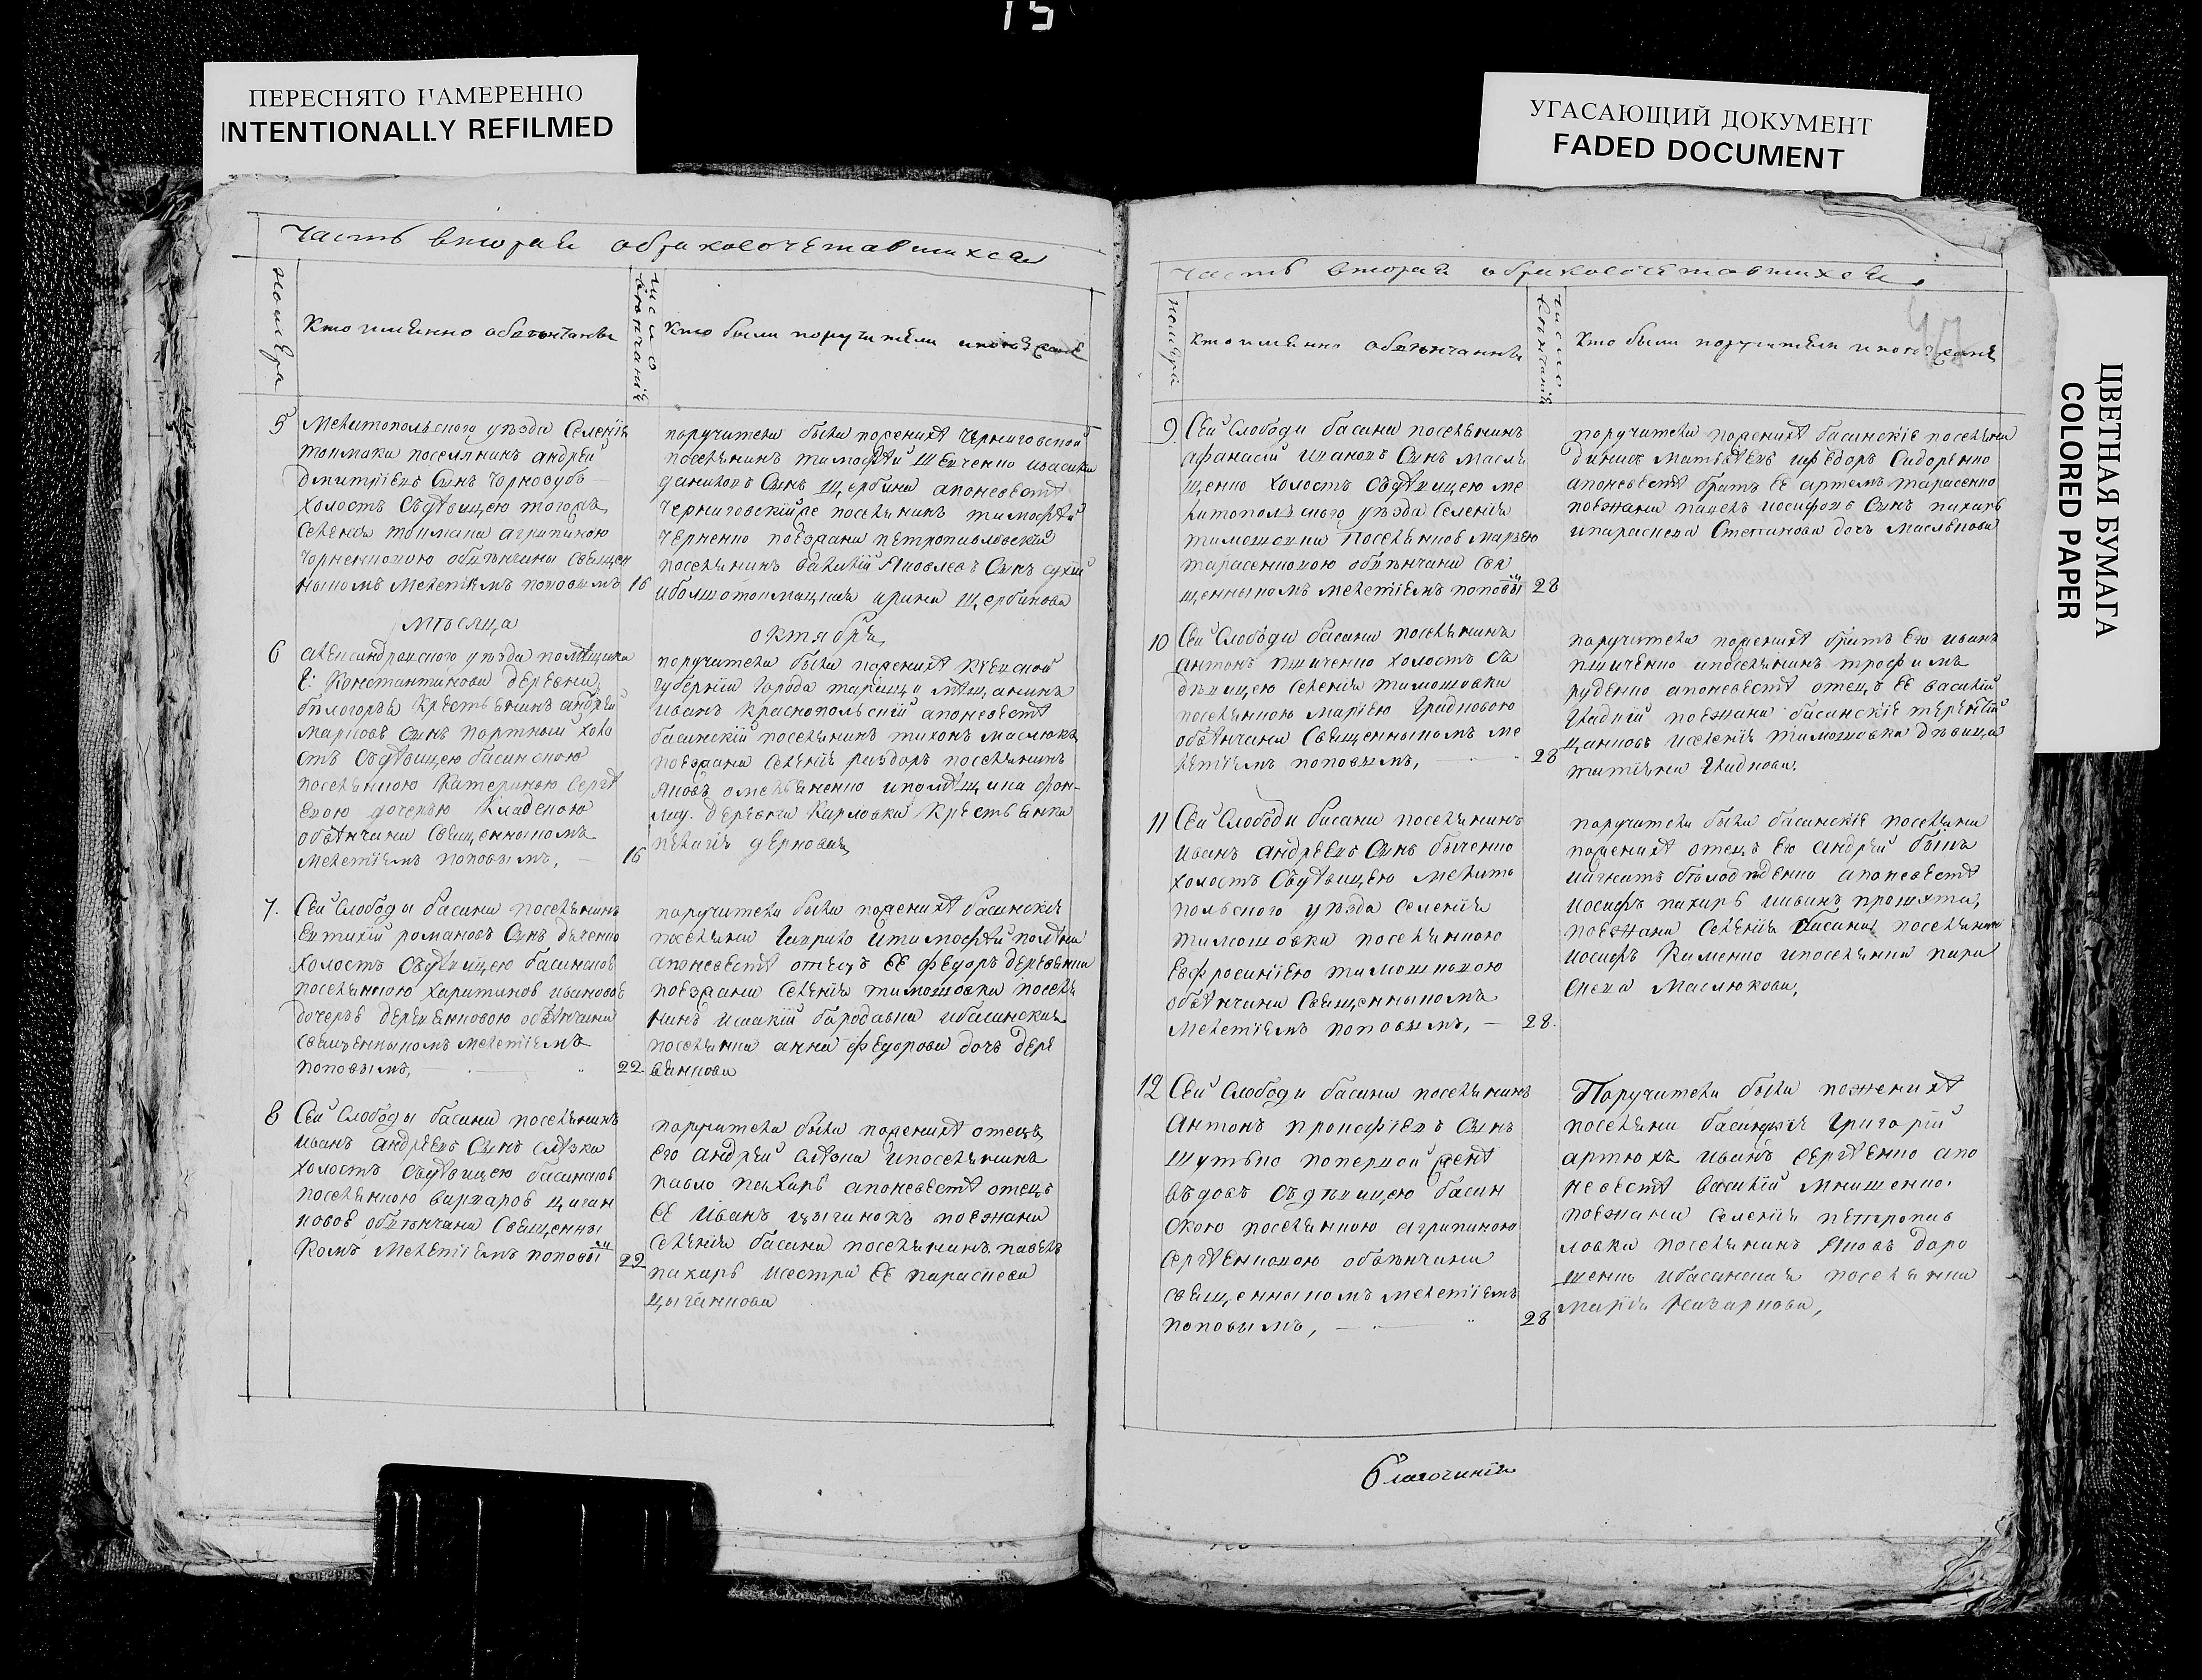 15
ПЕРЕСНЯТО НАМЕРЕННО
INTENTIONALLY REFILMED
УГАСАЮЩИЙ ДОКУМЕНТ
FADED DOCUMENT
ЦВЕТНАЯ БУМАГА
COLORED PAPER
Часть вторая обракосочетавшихся
номера
Кто именно обвѣнчаны
число вѣнчанія
Кто были поручители и поезжане
5
Мелитопольского уѣзда Селенія
токмака поселянинъ андрей
дмитріевъ Сынъ Чорнозубъ
холостъ Съдѣвицею тогожъ
Селенія токмака агрипиною
Чорненкоюю обвѣнчаны Священ
никомъ Мелетіемъ поповымъ
16
поручители были пожених Черниговской
поселянинъ тимофѣй Шевченко ивасилій
даниловъ Сынъ Щербина апоневестѣ
Черниговскійже поселянинъ тимофѣй
Черненко поезжани петропавловскій
поселянинъ василій Яковлевъ Сынъ сухій
иболшотокмацкая ирина Щербинова
мѣсяца
октября
6
александровского уѣзда помѣщика
Е: Константинова деревни
бѣлогорья крестьянинъ андрей
марковъ Сынъ портный холо
стъ Съдѣвицею басанскою
поселянкою Катериною Сергѣ
евою дочерью Кладовою
обвѣнчаны Священникомъ
мелетіемъ поповымъ,
16
поручители были поженихѣ Кіевской
губерніи города таращи мѣщанинъ
иванъ краснопольскій апоневестѣ
басанскій поселянинъ тихонъ маслюкъ
поезжани Селенія раздоръ поселянинъ
Яковъ омельяненко ипомѣщика фон-
деревни Карловки Крестьянка
пелагія дернова
7.
Сей Слободы басани поселянинъ
Евтихій романовъ Сынъ дяченко
холостъ Съдѣвицею басанскою
поселянкою Харитиною ивановою
дочерью деревенковою обвѣнчаны
Священникомъ мелетіемъ
поповымъ,
22.
поручители были поженихѣ басанскіе
поселяни Гаврило итимофѣй
апоневестѣ отецъ ее федоръ
поезжани Селенія тимошовки поселя
нинъ исаакій бородавка ибасанская
поселянка анна федорова дочь дере
вянкова
8
Сей Слободы басани поселянинъ
иванъ андреевъ Сынъ слѣзка
холостъ Съдѣвицею басанскою
поселянкою варварою циган
ковою обвѣнчани Священни
Комъ Мелетіемъ поповы
22
поручители были поженихѣ отецъ
его андрей слѣзка ипоселянинъ
павло пахарь апоневестѣ отецъ
ее иванъ цыганокъ поезжани
Селенія басани поселянинъ павелъ
пахарь исестра ее параскева
цыганкова
Часть вторая обракосочетавшихся.
47
номера
Кто именно обвѣнчанны
число вѣнчанія
Кто были поручители и поезжане
9.
Сей Слободы басани поселянинъ
афанасій ивановъ Сынъ масля
щенко холостъ Съдѣвицею ме
литопольского уѣзда Селенія
тимошовки поселянкою маріею
тарасенковою обвѣнчани Свя
щенникомъ мелетіемъ поповы
28
поручители поженихѣ басанскіе поселяни
матвѣевъ ифедоръ Сидоренко
апоневестѣ братъ ее артемъ тарасенко
поезжани павелъ иосифовъ Сынъ пахарь
ипараскева Степанова дочь маслѣкова
10
Сей Слободы басани поселянинъ
антонъ пшиченко холостъ Съ
дѣвицею Селенія тимошовки
поселянкою маріею Гладковою
обвѣнчани Священникомъ ме
летіемъ поповымъ,
28
поручители поженихѣ братъ его иванъ
пшиченко ипоселянинъ трофимъ
руденко апоневестѣ отецъ ее василій
Гладкій поезжани басанскіе терентій
иселенія тимошовки дѣвица
татіяна Гладкова.
11
Сей Слободы басани поселянинъ
иванъ андреевъ Сынъ быченко
холостъ Съдѣвицею мелито
польского уѣзда Селенія
тимошовки поселянкою
Евфросиніею тимошковою
обвѣнчани Священникомъ
мелетіемъ поповымъ, —
28.
поручители были басанскіе поселяни
поженихѣ отецъ его андрей быкъ
апоневестѣ
иосифъ пахарь ииванъ
поезжани Селенія басани поселянинъ
иосифъ ипоселянка пара
скева маслюкова,
12
Сей Слободы басани поселянинъ
антонъ прокофіевъ Сынъ
Шутько поперwой женѣ
въдовъ Съдѣвицею басан
скою поселянкою агрипиною
Сергѣенковою обвѣнчани
священникомъ мелетіемъ
поповымъ,
28
Поручители были поженихѣ
поселяни басанскіе Григорій
артюхъ иванъ сергѣенко апо
невестѣ василій мнишенко.
поезжани Селенія петропав
ловки поселянинъ Яковъ доро
шенко ибасанская поселянка
марія
благочинія